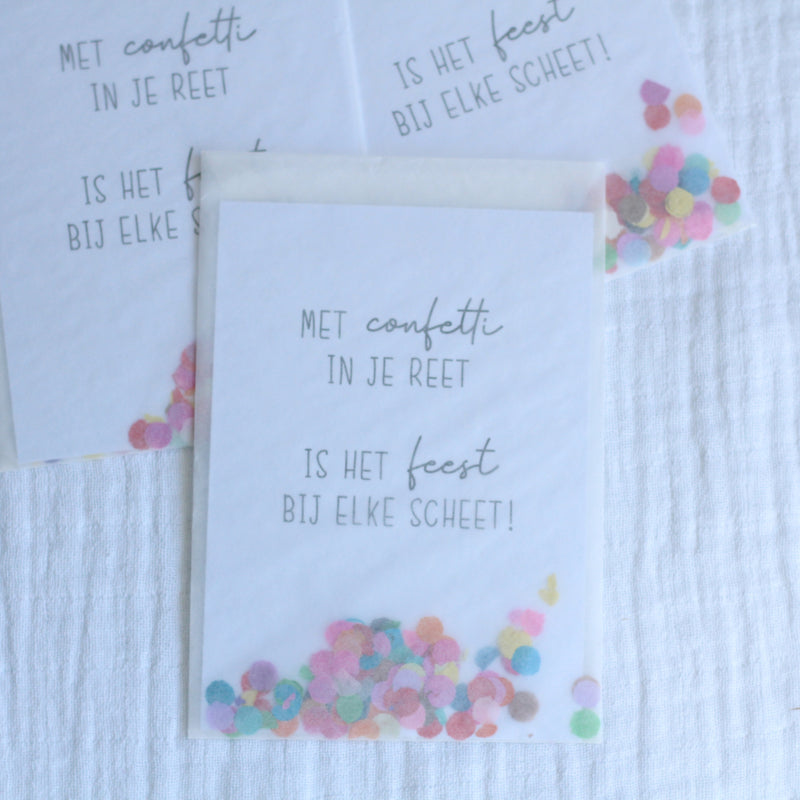 MET confetti
IN JE REET
IS HET
BIJ ELKE
IS HET feest
BIJ ELKE SCHEET!
MET confetti
IN JE REET
IS HET feest
BIJ ELKE SCHEET!